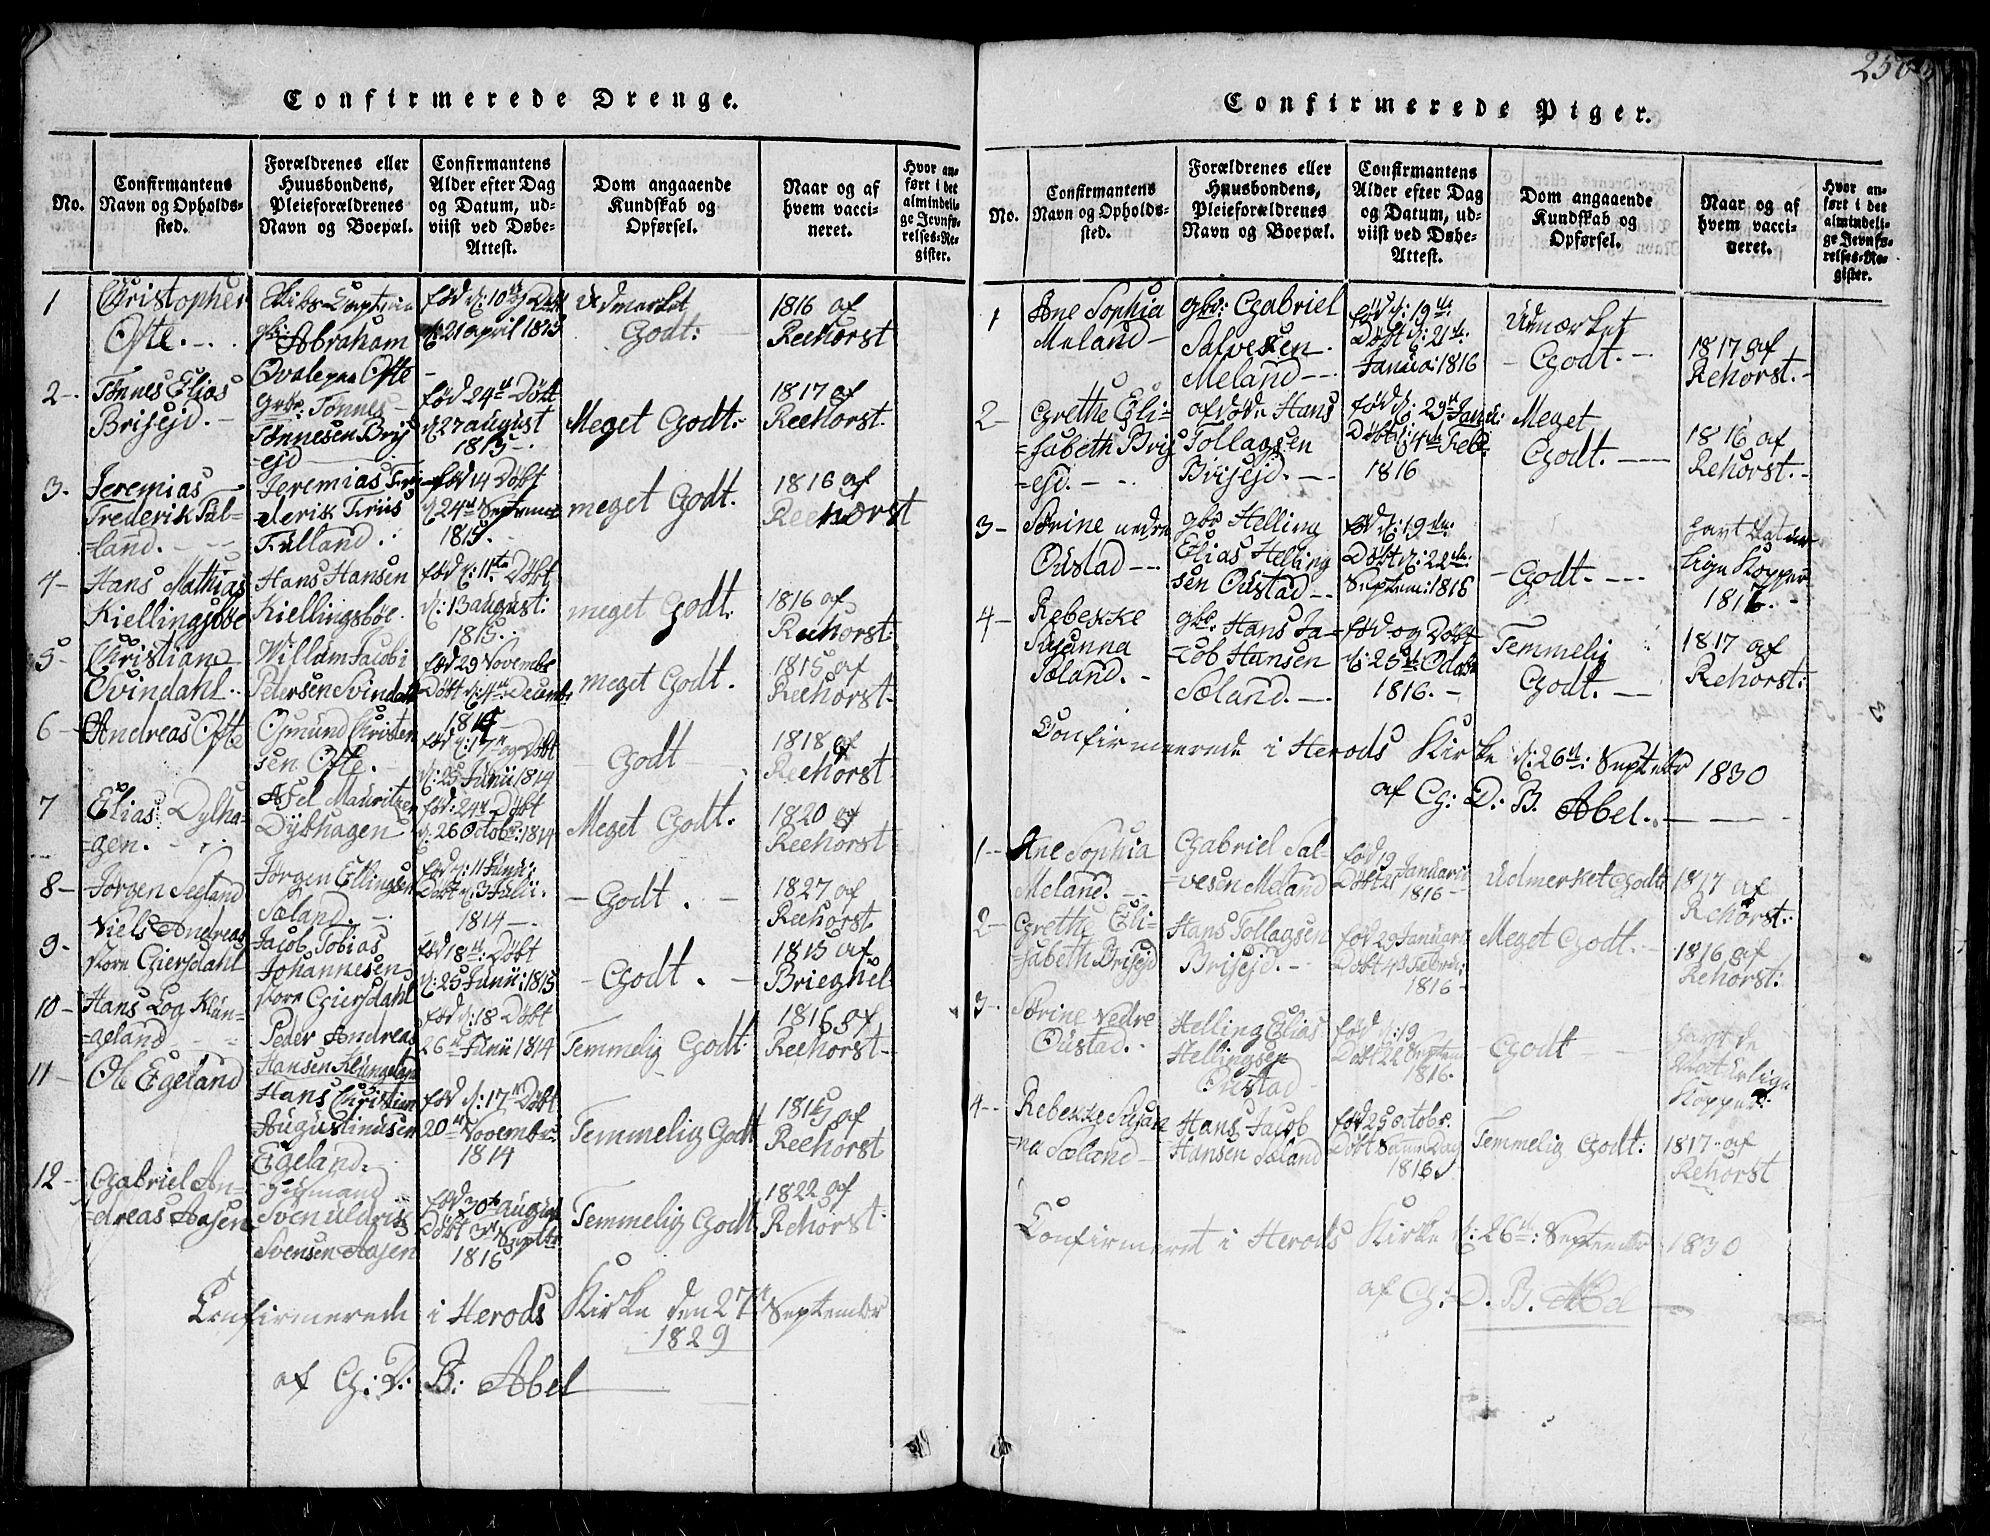 Confirmerede Drenge.
No.
Confirmantens
Navn og Opholds-
sted.
Forældrenes eller
Huusbondens,
Pleieforældrenes
Navn og Boepæl.
Confirmantens
Alder efter Dag
og Datum, ud-
viist ved Døbe-
Attest.
Dom angaaende
Kundskab og
Opførsel.
Naar og af
hvem vacci-
neret.
Hvor an-
ført i det
almindeli-
ge Jevnfø-
relses-Re-
gister.
1
Christopher
Ofte.
Skibs-Captein
Abraham
Ofte
21 april 1815
Udmærket
Godt:
1816 af
Reehorst
2-
Tønnes Elias
Brisejd-
gbr: Tønnes
Tønnesen Bris
=ejd
fød 24de Døbt
d: 27 august
1815-
Meget Godt:
1817 af
Reehorst.
3.
Jeremias
Frederik Tul-
land.
Jeremias Fri
derik Friis
Tulland.
fød 14 Døbt
d. 24de Septembr
1815.
meget Godt.
1816 af
Reehorst
4-
Hans Mathias
Kiellingsbøe
Hans Hansen
Kiellingsbøe.
fød d: 11te Døbt
d: 13 august:
1815.
meget Godt.
1816 af
Reehorst.
5-
Christiane
Svindahl.
Willam Jacobi
Petersen Svindahl
fød 29 Novembr
Døbt d: 4de Decemb:
1814
meget Godt.
1815 af
Reehorst-
6-
Andreas Ofte
Osmund Christen
sen Ofte.
fød d: 17de og Døbt
d: 25 Junii 1814
-Godt
1818 af
Reehorst
7
Elias Dybha-
gen.
Axel Mauritzen
Dybhagen
fød: 24de Døbt
d: 26 Octobr: 1814
Meget Godt.
1820 af
Reehorst
8-
Jørgen Seeland
Jørgen Ellingsen
Sæland.
fød d: 11 Juni:
Døbt d: 3 Julii.
1814-
-Godt.
1827 af
Reehorst.
9-
Niels Andreas
store Giersdahl
Jacob Tobias
Johannesen
store Giersdahl
fød 18de: Døbt
d: 25 Junii: 1815
-Godt.
1815 af
Brieghel
10-
Hans Log Klun-
=geland
Peder Andreas
Hansen Klungeland
fød d: 18 Døbt
26de Junii 1814
Temmelig Godt.
1816 af
Reehorst-
11-
Ole Egeland
Hans Christian
Augustinusen
Egeland.
fød d: 17de Døbt
20de Novembr.
1814
Temmelig Godt
1815 af
Reehorst.
12-
Gabriel An-
=dreas Aasen
Huusmand
Svenuldrik
Svensen Aasen
fød 30te august
Døbt 3de Septbr
1815
Temmelig Godt
1822 af
Rehorst:
Confirmerede i Herods Kirke den 27de September
1829
af G: D: B: Abel
250
Confirmerede Piger.
No.
Confirmantens
Navn og Opholds-
sted.
Forældrenes eller
Huusbondens,
Pleieforældrenes
Navn og Boepæl.
Confirmantens
Alder efter Dag
og Datum, ud-
viist ved Døbe-
Attest.
Dom angaaende
Kundskab og
Opførsel.
Naar og af
hvem vacci-
neret.
Hvor an-
ført i det
almindeli-
ge Jevnfø-
relses-Re-
gister.
1
Ane Sophia
Meland-
gbr: Gabriel
Salvesen.
Meland-
fød d: 19de:
Døbt d: 21de:
Janua: 1816
Udmærket
-Godt.-
1817 af
Rehorst.-
2-
Grethe Eli-
=sabeth Bris
=ejd.-
afdøde Hans
Tollagsen
Brisejd.-
fød d: 29de Janu:
Døbt d: 4de Febr
1816
Meget
Godt.-
1816 af
Rehorst.-
3-
Sørine nedre
Oustad-
gbr Helling
Elias Helling
sen Oustad-
fød d: 19de.
Døbt d: 22de.
Septem: 1816
-Godt.-
havt Natur
lige Kopper
1817.-
4-
Rebekke
Susanna
Sæland.-
gbr. Hans Ja-
cob Hansen
Sæland.-
fød og Døbt
d: 25de: Octobr
1816.-
Temmelig
Godt.-
1817 af
Rehorst:
Confirmeerede i Herods Kirke d: 26de: Septebr 1830
af G: D: B. Abel.-
1-
Ane Sophia
Meland.-
Gabriel Sal-
=vesen Meland
fød 19
Døbt 21 Januari
1816-
Udmerket Godt
1817 af
Rehorst:
2-
Grethe Eli-
=sabeth Brisejd
Hans Tollagsen
Brisejd.-
fød 29 Januari
Døbt 4de Febru:
1816-
Meget Godt.-
1816 af
Rehorst:
3-
Sørine Nedre
Oustad.-
Helling Elias
Hellingsen
Oustad
fød d: 19
Døbt 22 Septem
1816.
Godt-
havt de
Naturlige
Kopper.
4-
Rebekke Susan
=na Sæland-
Hans Jacob
Hansen Sæland
fød 25 Octobr.
Døbt Samme Dag
1816
Temmelig Godt:
1817- af
Rehorst
Confirmeret i Herods Kirke d: 26de: September 1830
af G: D. B. Abel